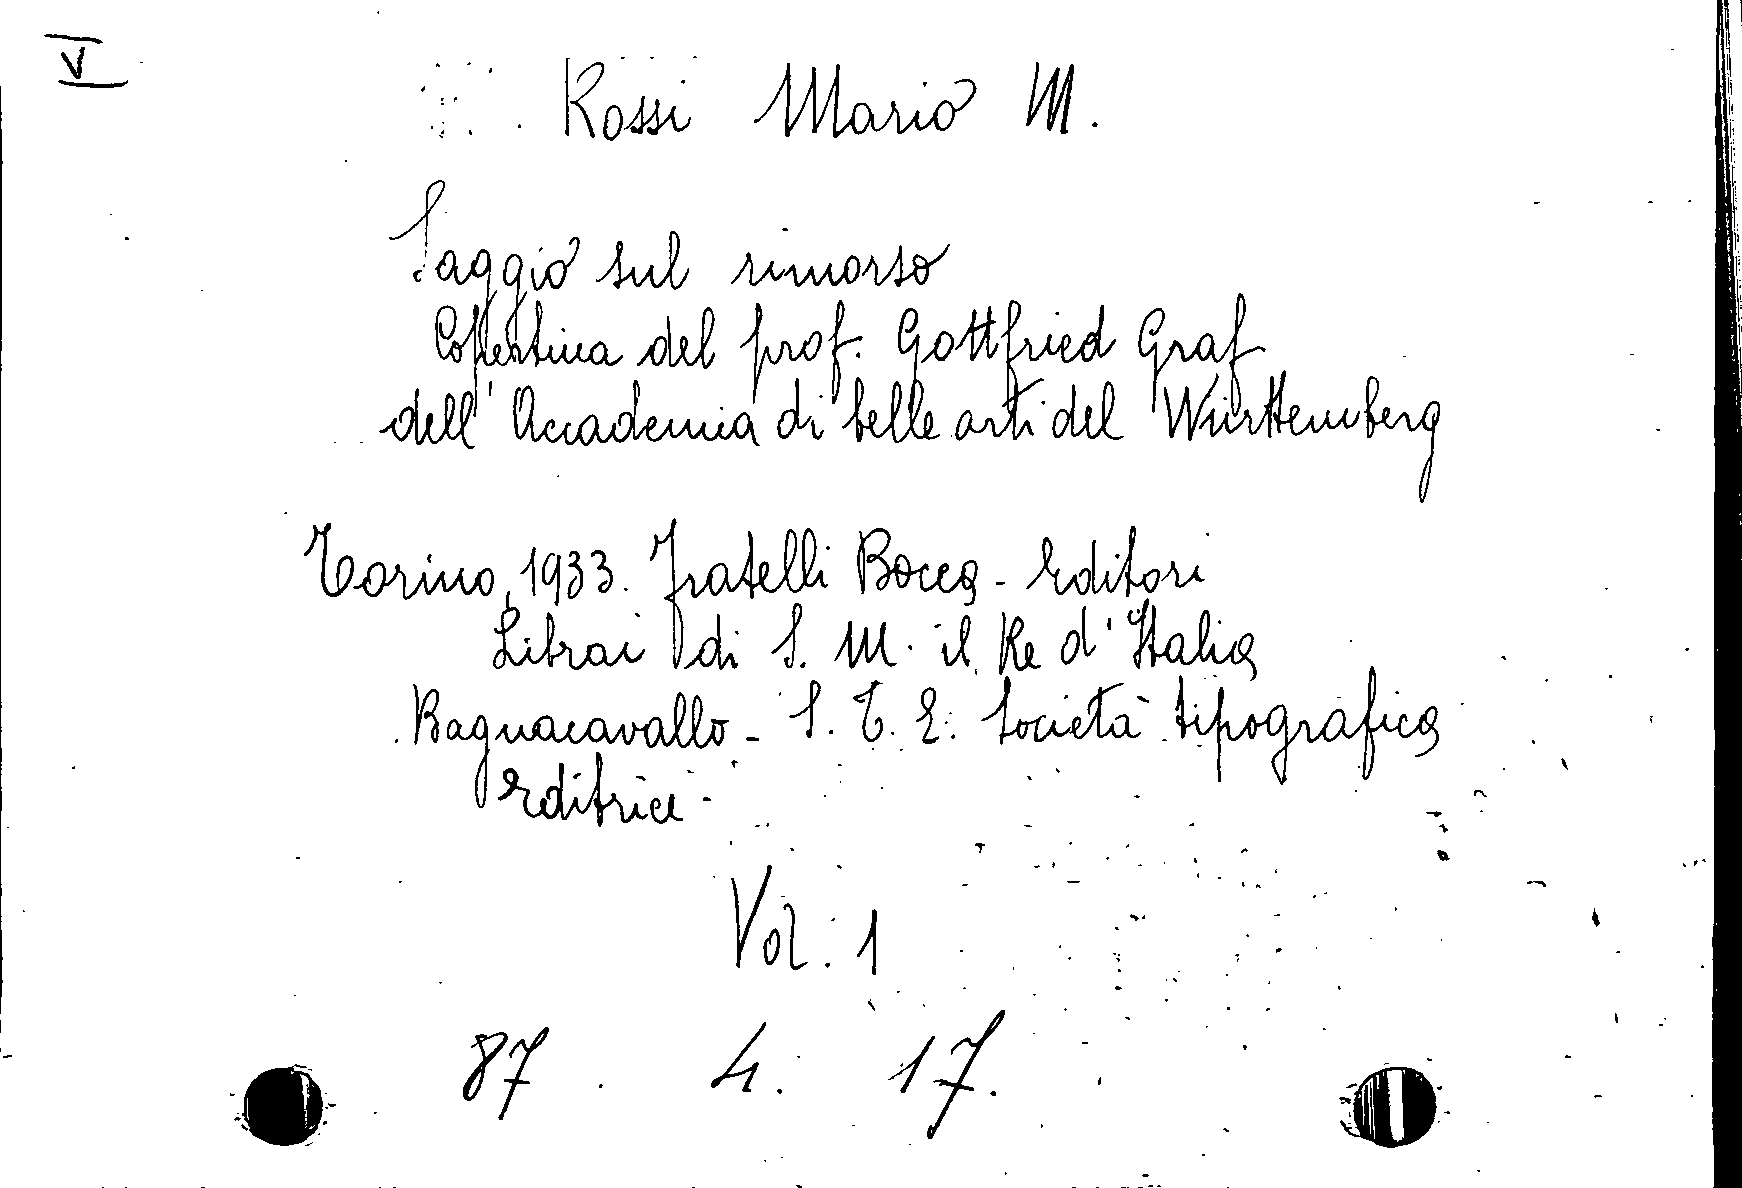 V
Rossi Mario M.
Saggio sul rimorso
Copertina del prof. Gottfried Graf
dell'Accademia di belle arti del Württemberg
Torino, 1933. Fratelli Bocca - Editori
Librai di S. M. il Re d'Italia
Bagnacavallo - S. T. E. Società tipografica
Editrice -
Vol. 1
87. 4. 17.